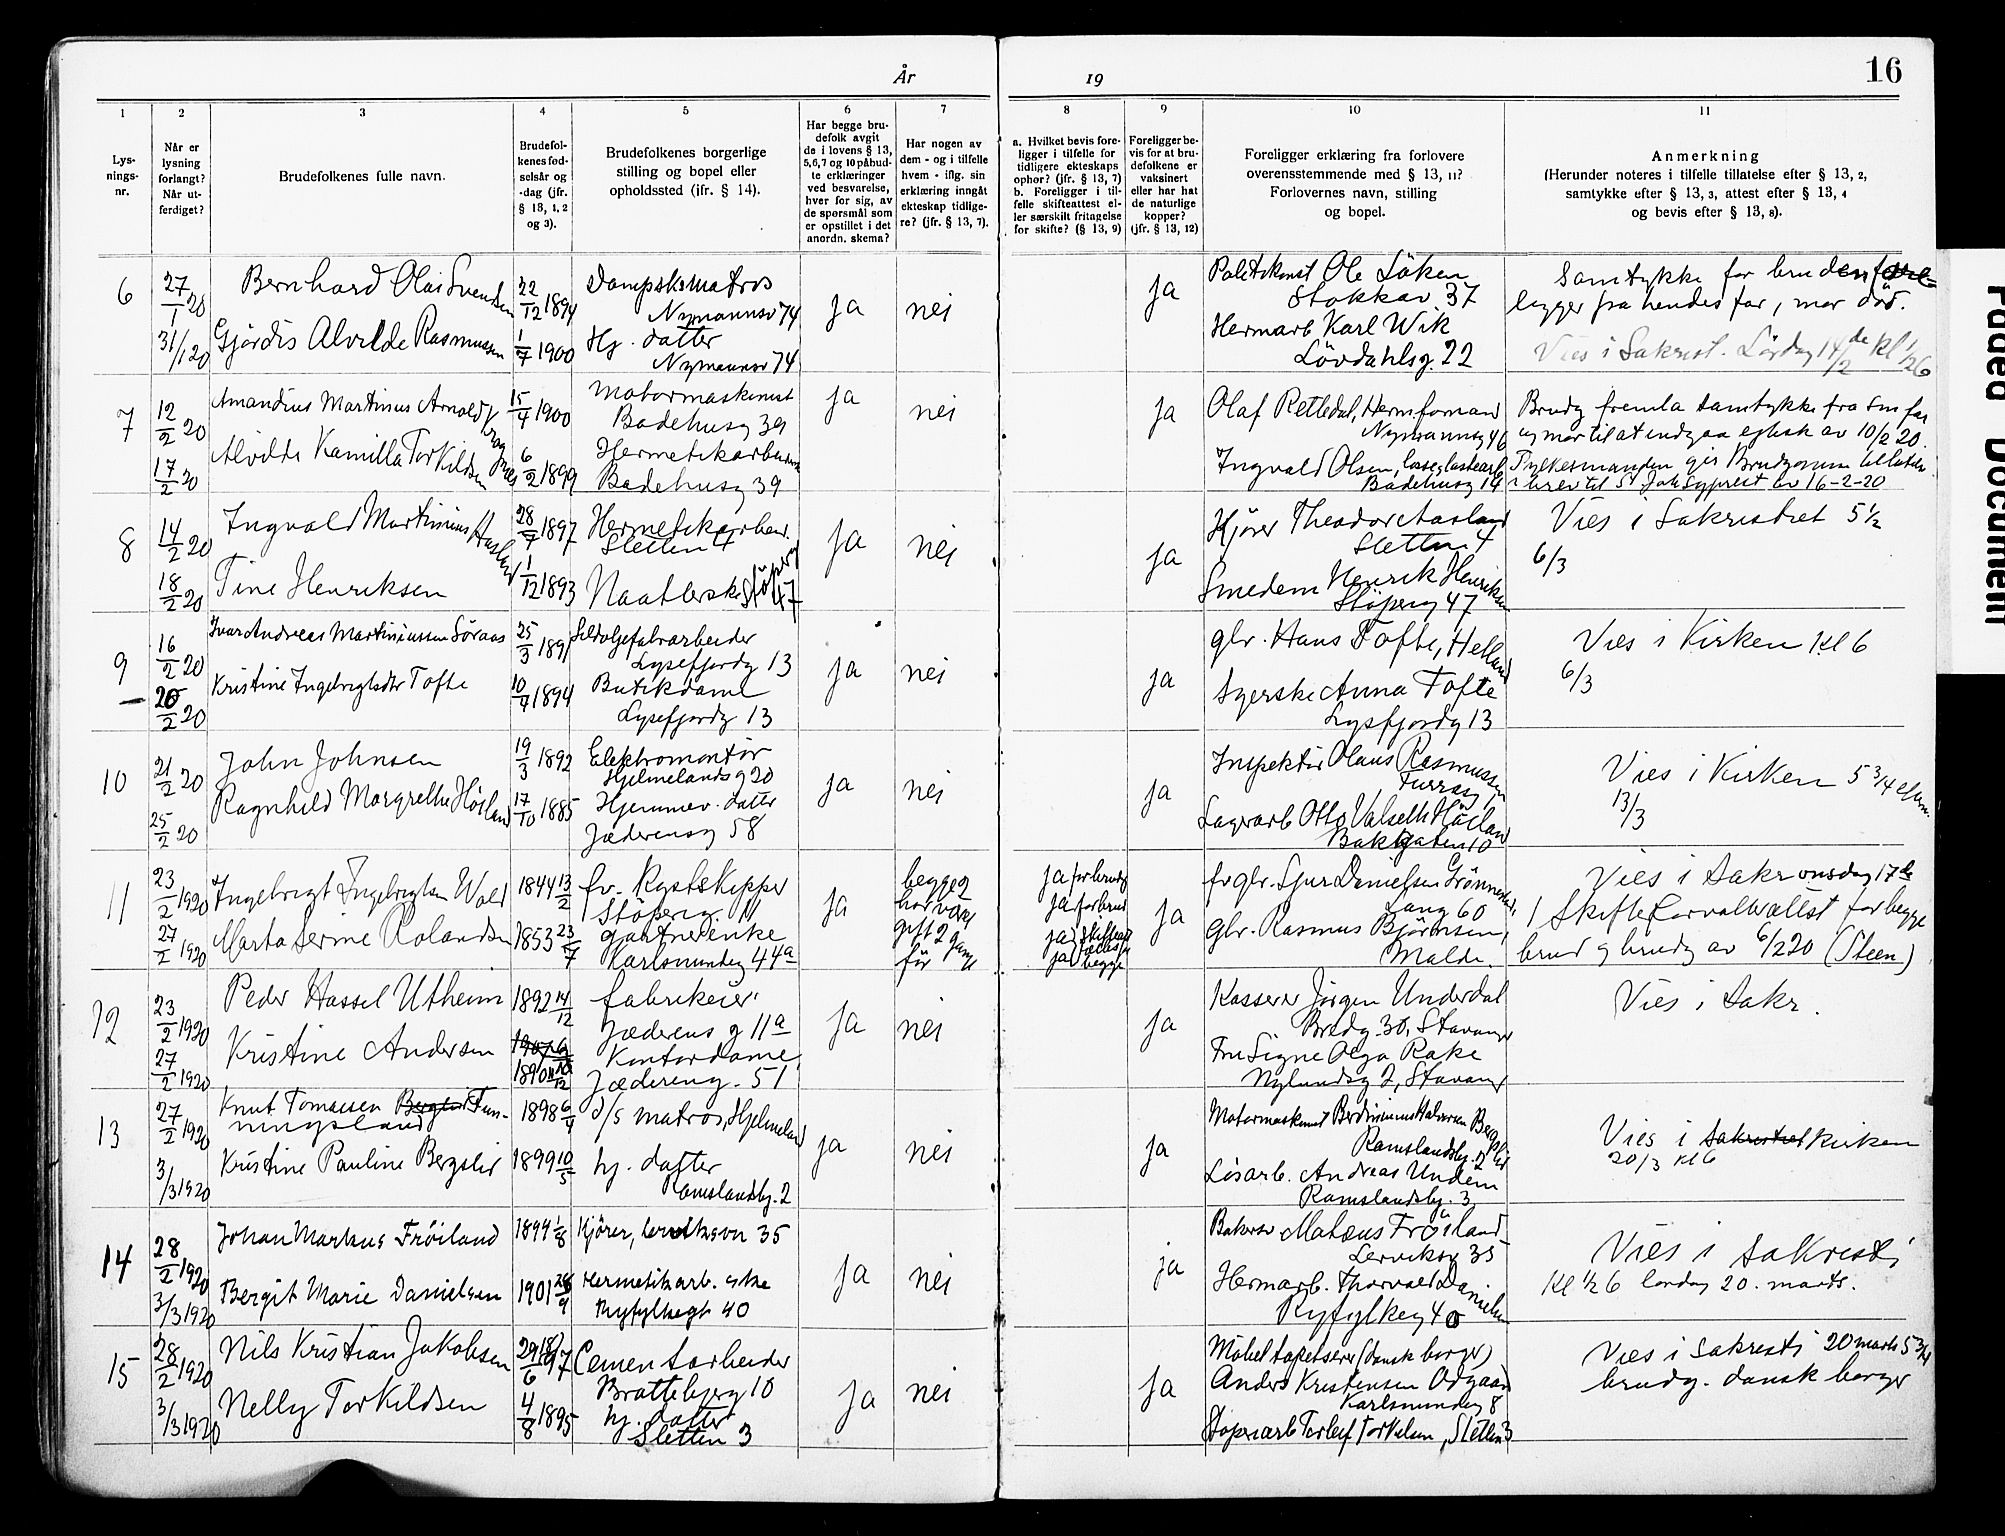 År 19
16
1
2
3
4
5
6
7
8
9
10
11
Lys-
nings-
nr.
Når er
lysning
forlangt?
Når ut-
ferdiget?
Brudefolkenes fulle navn.
Brudefol-
kenes fød-
selsår og
-dag (jfr.
§ 13, 1, 2
og 3).
Brudefolkenes borgerlige
stilling og bopel eller
opholdssted (jfr. § 14).
Har begge bru-
defolk avgit
de i lovens § 13,
5,6,7 og 10 påbud-
te erklæringer
ved besvarelse,
hver for sig, av
de spørsmål som
er opstillet i det
anordn. skema?
Har nogen av
dem - og i tilfelle
hvem - iflg. sin
erklæring inngått
ekteskap tidlige-
re? (jfr. § 13, 7).
a. Hvilket bevis fore-
ligger i tilfelle for
tidligere ekteskaps
ophor? (jfr. § 13, 7)
b. Foreligger i til-
felle skifteattest el-
ler særskilt fritagelse
for skifte? (§ 13, 9)
Foreligger be-
vis for at bru-
defolkene er
vaksinert
eller har hat
de naturlige
kopper?
(jfr. § 13, 12)
Foreligger erklæring fra forlovere
overensstemmende med § 13, 11?
Forlovernes navn, stilling
og bopel.
Anmerkning
(Herunder noteres i tilfelle tillatelse efter § 13, 2,
samtykke efter § 13, 3, attest efter § 13, 4
og bevis efter § 13, 8).
6
27/1 20
31/1 20
Bernhard Olai Svendsen
Gjördis Alvilde Rasmussen
22/12 1894
1/7 1900
Dampskmatros
Nymannsv 74
Hj. datter
Nymannsv 74
ja
nei
ja
Politikonst Ole Löken
Stokkav. 37
Hermarb Karl Wik
Lövdahlsg. 22
Samtykke for bruden fore-
ligger fra hendes far, mor död.
Vies i Sakrist. Lördag 14/2 de Kl 1/2 6
7
12/2 20
17/2 20
Amandius Martinius Arnold
Alvilde Kamilla Torkildsen
15/4 1900
6/2 1899
Motormaskinist
Badehusg 39
Hermetikarbeiderske
Badehusg 39
ja
nei
ja
Olaf Retledal, Hermformand
Nymannsg 46
Ingvald Olsen, losseglastearb
Badehusg 14
Brudg fremla samtykke fra sin far
og mor til at indgaa egtesk av 10/2 20.
Fylkesmanden gir Brudgommen tillatelse
i brev til St Joh Sgprest av 16-2-20
8
14/2 20
18/2 20
Ingvald Martinius Aasland
Tine Henriksen
28/7 1897
1/12 1893
Hermetikarbeid.
Sletten 4
Naatlerske Stöperg 47
ja
nei
ja
Kjörer Theodor Aasland
Sletten 4
Smedem Henrik Henriksen
Stöperg 47
Vies i Sakrestiet 5 1/2
6/3
9
16/2 20
20/2 20
Ivar Andreas Martiniussen Söraas
Kristine Ingebrigtsdtr Tofte
25/3 1891
10/4 1894
Sildoljefabrarbeider
Lysefjordg 13
Butikdame
Lysefjordg 13
ja
nei
ja
glr. Hans Tofte, Helland
Syerske Anna Tofte
Lysefjordg 13
Vies i Kirken Kl 6
6/3
10
21/2 20
25/2 20
John Johnsen
Ragnhild Margrethe Högland
19/3 1892
17/10 1885
Elektromontör
Hjelmelandsg 20
Hjemmev. datter
Jæderensg 58
ja
nei
ja
Inspektör Olaus Rasmussen
Lagerarb Otto Valseth Högland
Bakkgaten 10
Vies i Kirken 5 3/4 efterm
13/3
11
23/2 1920
27/2 1920
Ingebrigt Ingebrigtsen Wold
Marta Serine Rolandsen
1844 13/2
1853 23/7
fv. Kystskipper
Stöperig. 11
gartnerenke
Karlsmindeg 44a
ja
begge
har været
gift 2 gange
för
ja for brudg
ja for brud
ja skifteat
ja begge
ja
fv glr. Sjur Danielsen Grönnestad,
Lang 60
glr. Rasmus Björnsen,
Malde
Vies i Sakr onsdag 17de
1 Skifteforvalterattest for begge
brud og brudg av 6/2 20 (Steen)
12
23/2 1920
27/2 1920
Peder Hassel Utheim
Kristine Andersen
1892 14/12
1890
fabrikeier
Jæderens g 11a
Kontordame
Jædereng. 51
ja
nei
ja
Kasserer Jörgen Underdal
Bredg. 30, Stavanger
Fru Signe Olga Rake
Nylundsg 2, Stavanger
Vies i Sakr.
13
27/2 1920
3/3 1920
Knut Tomassen Bergslid Fun-
ningsland
Kristine Pauline Bergslid
1898 6/4
1899 10/5
d/s matros, Hjelmeland
hj. datter
Ramslandsbg. 2
ja
nei
ja
Motormaskinist Berdinius Halvorsen Bergslid
Ramslandsbg. 2
Lösarb. Andreas Undem
Ramslandsbg. 3
Vies i Sakristiet Kirken
20/3 Kl 6
14
28/2 1920
3/3 1920
Johan Markus Fröiland
Bergit Marie Danielsen
1894 1/8
1901 28/9
Kjörer, Lerviksgn 35
Hermetikarb. ske
Ryfylkegt 40
ja
nei
ja
Bakersv Mateus Fröiland
Lerviksg 35
Hermarb. Thorvald Danielsen
Ryfylkeg 40
Vies i Sakresti
Kl 1/2 6 lördag 20. marts.
15
28/2 1920
3/3 1920
Nils Kristian Jakobsen
Nelly Torkildsen
29/6 1897
4/8 1895
Cementarbeider
Brattebjerg 10
hj. datter
Sletten 3
ja
nei
ja
Möbeltapetserer (dansk borger)
Anders Kristensen Odgaard
Karlsmindeg 8
Stöperiarb Torleif Torkelsen, Sletten 3
Vies i Sakresti 20 marts 5 3/4
brudg. dansk borger
Faded Document